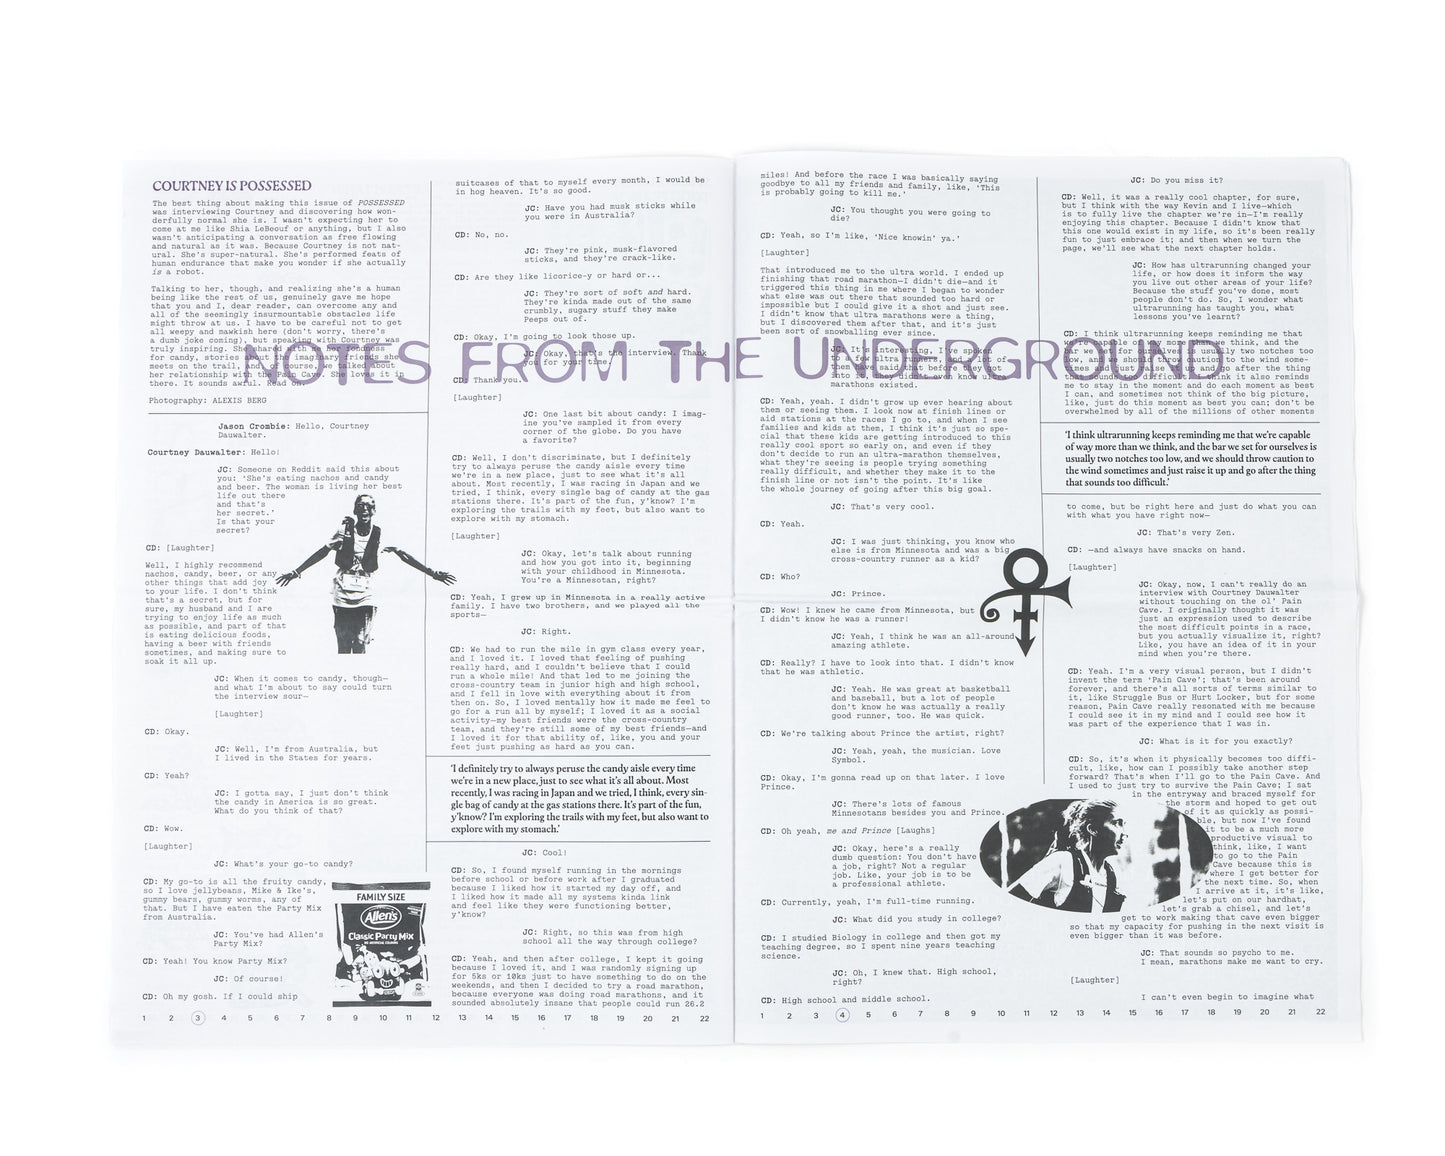 COURTNEY IS POSSESSED
The best thing about making this issue of POSSESSED
was interviewing Courtney and discovering how won-
derfully normal she is. I wasn't expecting her to
come at me like Shia LeBeouf or anything, but I also
wasn't anticipating a conversation as free flowing
and natural as it was. Because Courtney is not nat-
ural. She's super-natural. She's performed feats of
human endurance that make you wonder if she actually
is a robot.
Talking to her, though, and realizing she's a human
being like the rest of us, genuinely gave me hope
that you and I, dear reader, can overcome any and
all of the seemingly insurmountable obstacles life
might throw at us. I have to be careful not to get
all weepy and mawkish here (don't worry, there's
a dumb joke coming), but speaking with Courtney was
truly inspiring. She shared with me her fondness
for candy, stories about the imaginary friends she
meets on the trail, and, of course, we talked about
her relationship with the Pain Cave. She loves it in
there. It sounds awful. Read on.
Photography: ALEXIS BERG
Jason Crombie: Hello, Courtney
Dauwalter.
Courtney Dauwalter: Hello!
JC: Someone on Reddit said this about
you: 'She's eating nachos and candy
and beer. The woman is living her best
life out there
and that's
her secret.'
Is that your
secret?
CD: [Laughter]
Well, I highly recommend
nachos, candy, beer, or any
other things that add joy
to your life. I don't think
that's a secret, but for
sure, my husband and I are
trying to enjoy life as much
as possible, and part of that
is eating delicious foods,
having a beer with friends
sometimes, and making sure to
soak it all up.
JC: When it comes to candy, though—
and what I'm about to say could turn
the interview sour—
[Laughter]
CD: Okay.
JC: Well, I'm from Australia, but
I lived in the States for years.
CD: Yeah?
JC: I gotta say, I just don't think
the candy in America is so great.
What do you think of that?
CD: Wow.
[Laughter]
JC: What's your go-to candy?
CD: My go-to is all the fruity candy,
so I love jellybeans, Mike & Ike's,
gummy bears, gummy worms, any of
that. But I have eaten the Party Mix
from Australia.
JC: You've had Allen's
Party Mix?
CD: Yeah! You know Party Mix?
JC: Of course!
CD: Oh my gosh. If I could ship
FAMILY SIZE
Allen's
Classic Party Mix
suitcases of that to myself every month, I would be
in hog heaven. It's so good.
JC: Have you had musk sticks while
you were in Australia?
CD: No, no.
JC: They're pink, musk-flavored
sticks, and they're crack-like.
CD: Are they like licorice-y or hard or...
JC: They're sort of soft and hard.
They're kinda made out of the same
crumbly, sugary stuff they make
Peeps out of.
CD: Okay, I'm going to look those up.
JC: Okay, that's the interview. Thank
you for your time.
CD: Thank you.
[Laughter]
JC: One last bit about candy: I imag-
ine you've sampled it from every
corner of the globe. Do you have
a favorite?
CD: Well, I don't discriminate, but I definitely
try to always peruse the candy aisle every time
we're in a new place, just to see what it's all
about. Most recently, I was racing in Japan and we
tried, I think, every single bag of candy at the gas
stations there. It's part of the fun, y'know? I'm
exploring the trails with my feet, but also want to
explore with my stomach.
[Laughter]
JC: Okay, let's talk about running
and how you got into it, beginning
with your childhood in Minnesota.
You're a Minnesotan, right?
CD: Yeah, I grew up in Minnesota in a really active
family. I have two brothers, and we played all the
sports—
JC: Right.
CD: We had to run the mile in gym class every year,
and I loved it. I loved that feeling of pushing
really hard, and I couldn't believe that I could
run a whole mile! And that led to me joining the
cross-country team in junior high and high school,
and I fell in love with everything about it from
then on. So, I loved mentally how it made me feel to
go for a run all by myself; I loved it as a social
activity—my best friends were the cross-country
team, and they're still some of my best friends—and
I loved it for that ability of, like, you and your
feet just pushing as hard as you can.
'I definitely try to always peruse the candy aisle every time
we're in a new place, just to see what it's all about. Most
recently, I was racing in Japan and we tried, I think, every sin-
gle bag of candy at the gas stations there. It's part of the fun,
y'know? I'm exploring the trails with my feet, but also want to
explore with my stomach.'
JC: Cool!
CD: So, I found myself running in the mornings
before school or before work after I graduated
because I liked how it started my day off, and
I liked how it made all my systems kinda link
and feel like they were functioning better,
y'know?
JC: Right, so this was from high
school all the way through college?
CD: Yeah, and then after college, I kept it going
because I loved it, and I was randomly signing up
for 5ks or 10ks just to have something to do on the
weekends, and then I decided to try a road marathon,
because everyone was doing road marathons, and it
sounded absolutely insane that people could run 26.2
1 2 3 4 5 6 7 8 9 10 11 12 13 14 15 16 17 18 19 20 21 22
NOTES FROM THE UNDERGROUND
miles! And before the race I was basically saying
goodbye to all my friends and family, like, 'This
is probably going to kill me.'
JC: You thought you were going to
die?
CD: Yeah, so I'm like, 'Nice knowin' ya.'
[Laughter]
That introduced me to the ultra world. I ended up
finishing that road marathon—I didn't die—and it
triggered this thing in me where I began to wonder
what else was out there that sounded too hard or
impossible but I could give it a shot and just see.
I didn't know that ultra marathons were a thing,
but I discovered them after that, and it's just
been sort of snowballing ever since.
JC: It's interesting, I've spoken
to a few ultra runners, and a lot of
them have said that before they got
into it, they didn't even know ultra-
marathons existed.
CD: Yeah, yeah. I didn't grow up ever hearing about
them or seeing them. I look now at finish lines or
aid stations at the races I go to, and when I see
families and kids at them, I think it's just so spe-
cial that these kids are getting introduced to this
really cool sport so early on, and even if they
don't decide to run an ultra-marathon themselves,
what they're seeing is people trying something
really difficult, and whether they make it to the
finish line or not isn't the point. It's like
the whole journey of going after this big goal.
JC: That's very cool.
CD: Yeah.
JC: I was just thinking, you know who
else is from Minnesota and was a big
cross-country runner as a kid?
CD: Who?
JC: Prince.
CD: Wow! I knew he came from Minnesota, but
I didn't know he was a runner!
JC: Yeah, I think he was an all-around
amazing athlete.
CD: Really? I have to look into that. I didn't know
that he was athletic.
JC: Yeah. He was great at basketball
and baseball, but a lot of people
don't know he was actually a really
good runner, too. He was quick.
CD: We're talking about Prince the artist, right?
JC: Yeah, yeah, the musician. Love
Symbol.
CD: Okay, I'm gonna read up on that later. I love
Prince.
JC: There's lots of famous
Minnesotans besides you and Prince.
CD: Oh yeah, me and Prince [Laughs]
JC: Okay, here's a really
dumb question: You don't have
a job, right? Not a regular
job. Like, your job is to be
a professional athlete.
CD: Currently, yeah, I'm full-time running.
JC: What did you study in college?
CD: I studied Biology in college and then got my
teaching degree, so I spent nine years teaching
science.
JC: Oh, I knew that. High school,
right?
CD: High school and middle school.
JC: Do you miss it?
CD: Well, it was a really cool chapter, for sure,
but I think with the way Kevin and I live—which
is to fully live the chapter we're in—I'm really
enjoying this chapter. Because I didn't know that
this one would exist in my life, so it's been really
fun to just embrace it; and then when we turn the
page, we'll see what the next chapter holds.
JC: How has ultrarunning changed your
life, or how does it inform the way
you live out other areas of your life?
Because the stuff you've done, most
people don't do. So, I wonder what
ultrarunning has taught you, what
lessons you've learnt?
CD: I think ultrarunning keeps reminding me that
we're capable of way more than we think, and the
bar we set for ourselves is usually two notches too
low, and we should throw caution to the wind some-
times and just raise it up and go after the thing
that sounds too difficult. I think it also reminds
me to stay in the moment and do each moment as best
I can, and sometimes not think of the big picture,
like, just do this moment as best you can; don't be
overwhelmed by all of the millions of other moments
'I think ultrarunning keeps reminding me that we're capable
of way more than we think, and the bar we set for ourselves is
usually two notches too low, and we should throw caution to
the wind sometimes and just raise it up and go after the thing
that sounds too difficult.'
to come, but be right here and just do what you can
with what you have right now—
JC: That's very Zen.
CD: —and always have snacks on hand.
[Laughter]
JC: Okay, now, I can't really do an
interview with Courtney Dauwalter
without touching on the ol' Pain
Cave. I originally thought it was
just an expression used to describe
the most difficult points in a race,
but you actually visualize it, right?
Like, you have an idea of it in your
mind when you're there.
CD: Yeah. I'm a very visual person, but I didn't
invent the term 'Pain Cave'; that's been around
forever, and there's all sorts of terms similar to
it, like Struggle Bus or Hurt Locker, but for some
reason, Pain Cave really resonated with me because
I could see it in my mind and I could see how it
was part of the experience that I was in.
JC: What is it for you exactly?
CD: So, it's when it physically becomes too diffi-
cult, like, how can I possibly take another step
forward? That's when I'll go to the Pain Cave. And
I used to just try to survive the Pain Cave; I sat
in the entryway and braced myself for
the storm and hoped to get out
of it as quickly as possi-
ble, but now I've found
it to be a much more
productive visual to
think, like, I want
to go to the Pain
Cave because this is
where I get better for
the next time. So, when
I arrive at it, it's like,
let's put on our hardhat,
let's grab a chisel, and let's
get to work making that cave even bigger
so that my capacity for pushing in the next visit is
even bigger than it was before.
JC: That sounds so psycho to me.
I mean, marathons make me want to cry.
[Laughter]
I can't even begin to imagine what
1 2 3 4 5 6 7 8 9 10 11 12 13 14 15 16 17 18 19 20 21 22